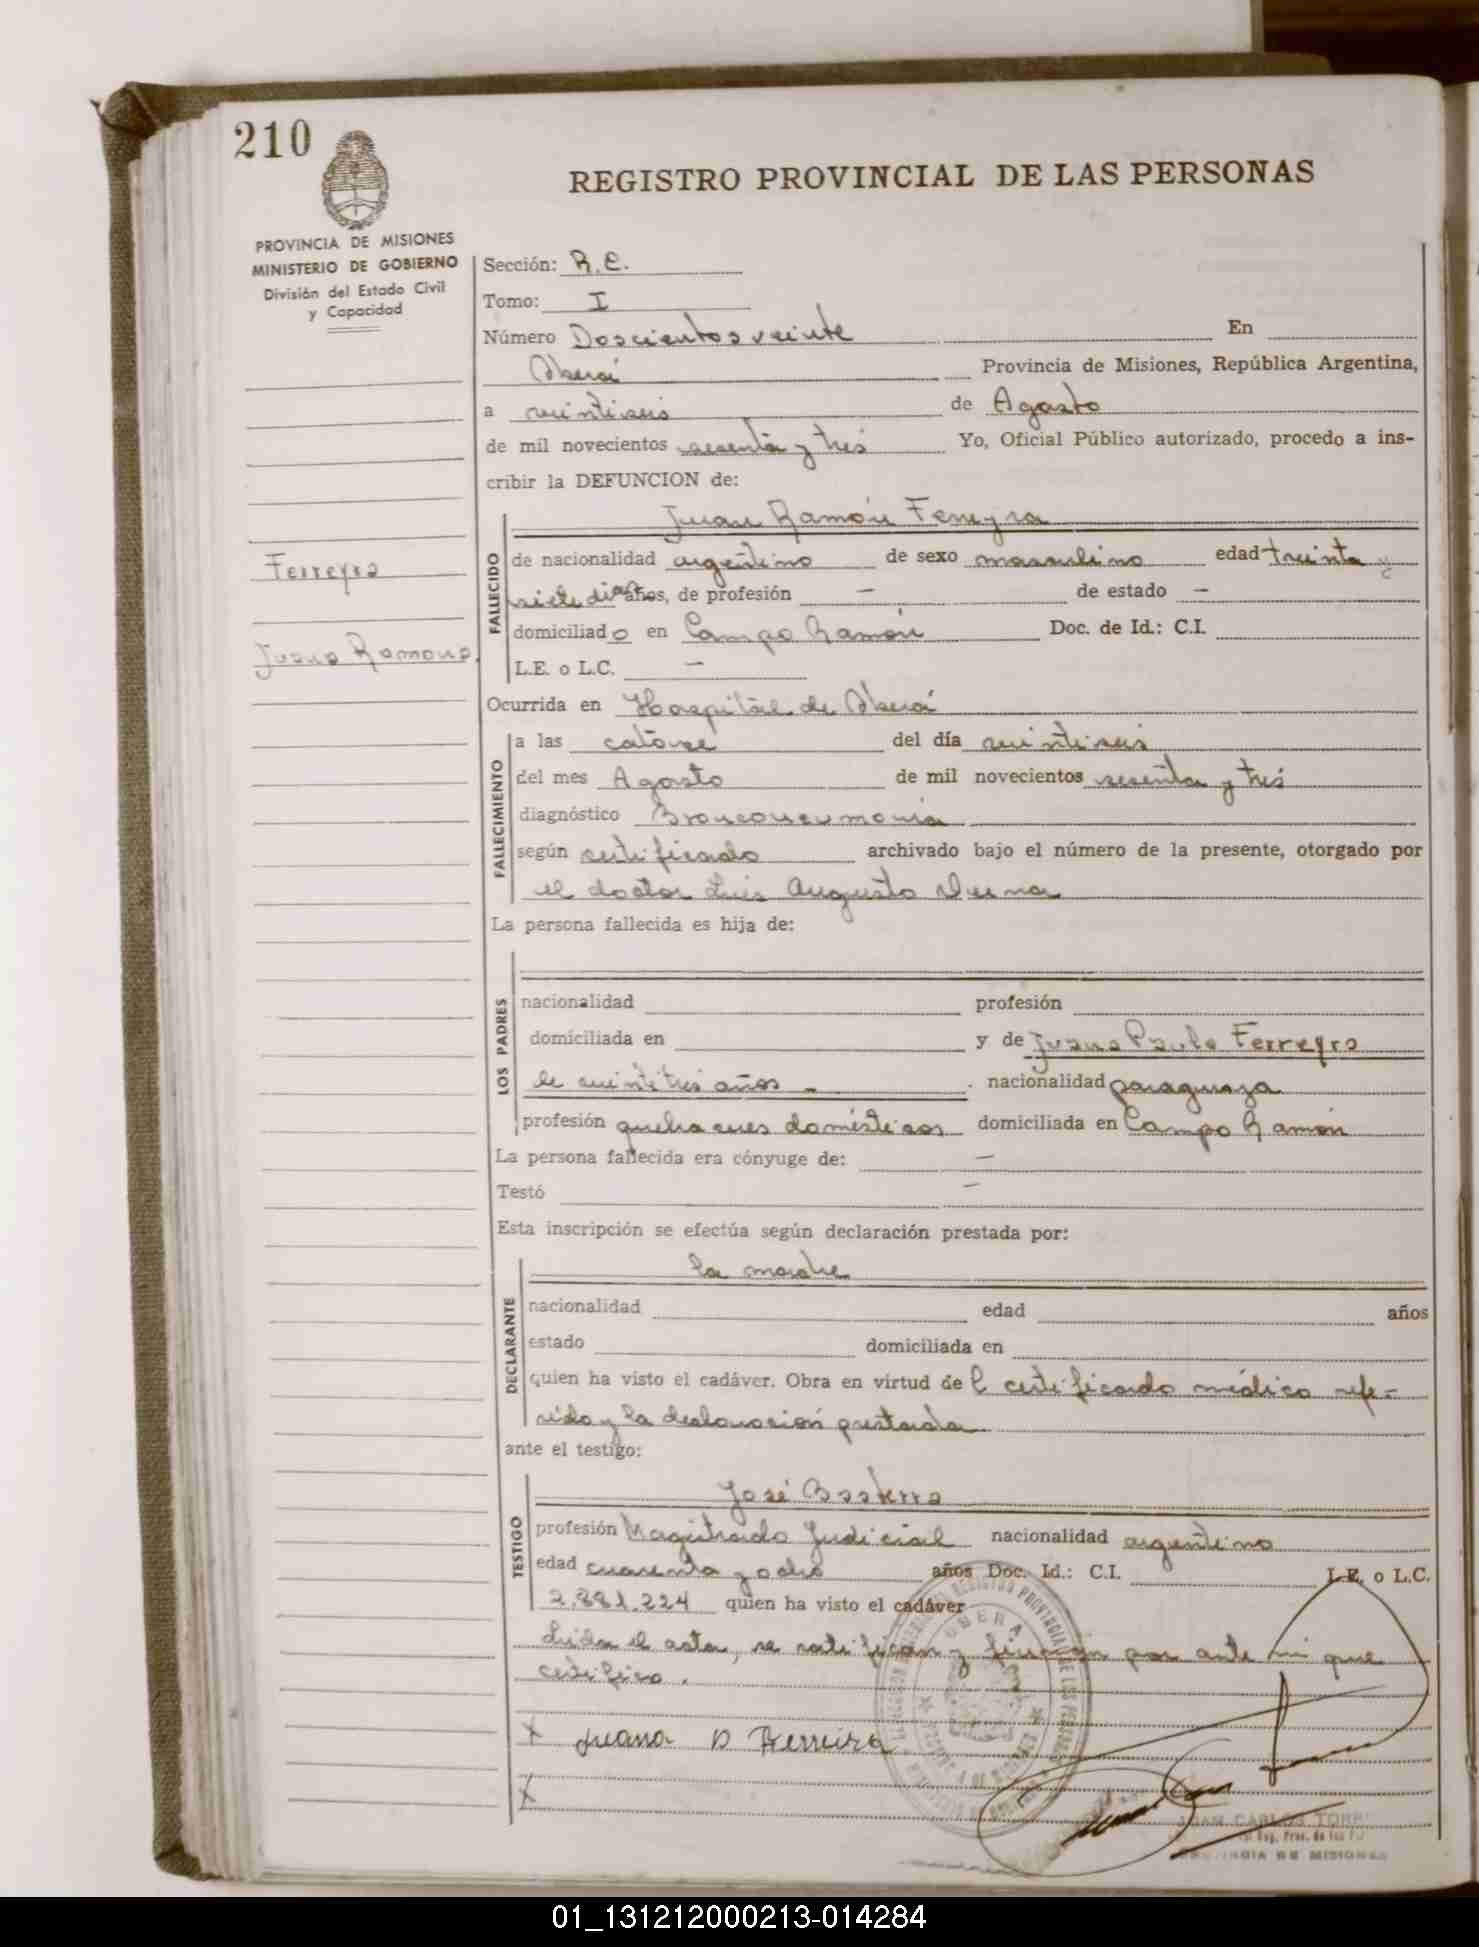 210
REGISTRO PROVINCIAL DE LAS PERSONAS
PROVINCIA DE MISIONES
MINISTERIO DE GOBIERNO
División del Estado Civil
y Capacidad
Sección: R. C.
Tomo: I
Número Doscientos veinte En
Oberá Provincia de Misiones, República Argentina,
a veintiseis de Agosto
de mil novecientos sesenta y tres Yo, Oficial Público autorizado, procedo a ins-
cribir la DEFUNCION de:
Juan Ramón Ferreyra
FALLECIDO
de nacionalidad argentino de sexo masculino edad treinta y
siete dias años, de profesión — de estado —
domiciliado en Campo Ramón Doc. de Id.: C.I.
L.E. o L.C. —
Ferreyra
Juana Ramona
Ocurrida en Hospital de Oberá
FALLECIMIENTO
a las catorce del día veintiseis
del mes Agosto de mil novecientos sesenta y tres
diagnóstico Bronconeumonia
según certificado archivado bajo el número de la presente, otorgado por
el doctor Luis Augusto
La persona fallecida es hija de:
LOS PADRES
nacionalidad profesión
domiciliada en y de Juana Paula Ferreyra
de veintitres años - . nacionalidad paraguaya
profesión quehaceres domésticos domiciliada en Campo Ramón
La persona fallecida era cónyuge de: —
Testó —
Esta inscripción se efectúa según declaración prestada por:
la madre
DECLARANTE
nacionalidad edad años
estado domiciliada en
quien ha visto el cadáver. Obra en virtud del certificado médico refe-
rido y la declaración prestada
ante el testigo:
TESTIGO
José Basterra
profesión Magistrado Judicial nacionalidad argentino
edad cuarenta y ocho años Doc. Id.: C.I. L.E. o L.C.
2.881.224 quien ha visto el cadáver
Leida el acta, se ratifican y firman por ante mi que
certifico.
X Juana P Ferreira
X
JUAN CARLOS TORR
PROVINCIA DE MISIONES
01_131212000213-014284